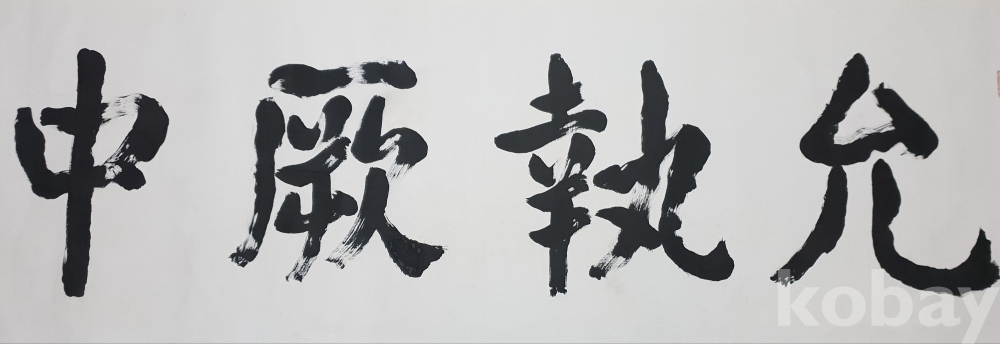 允執厥中
kobay